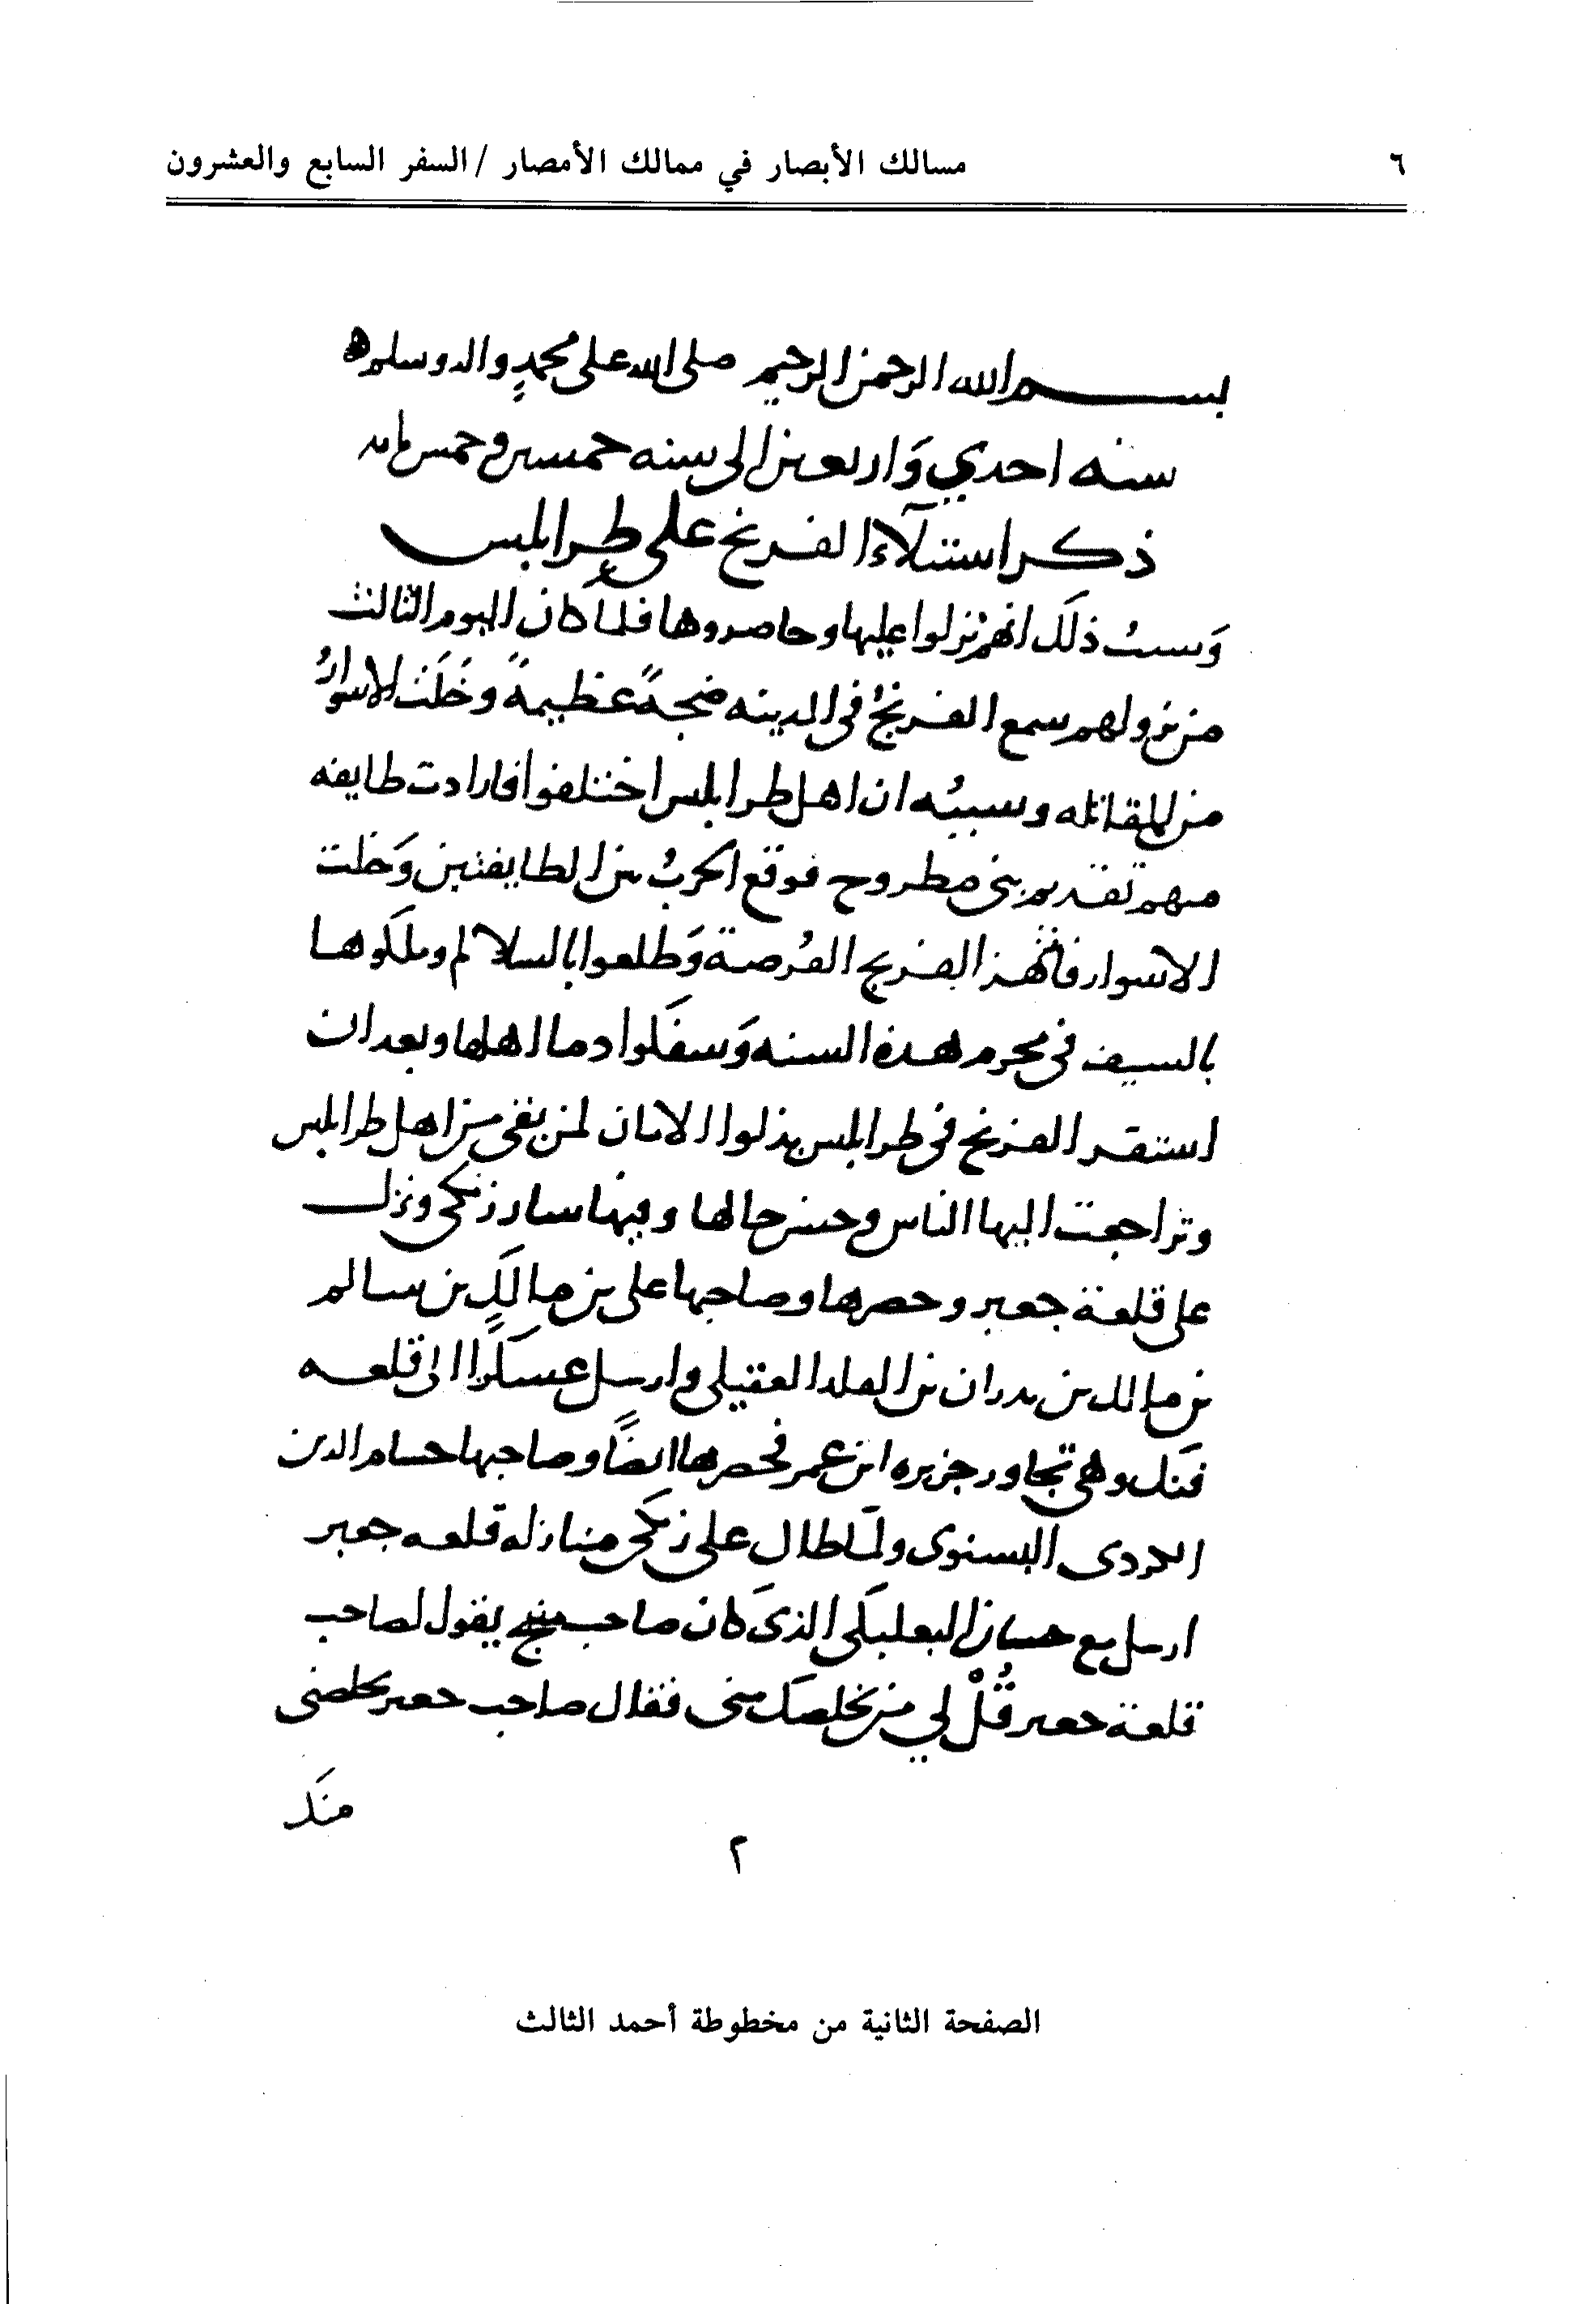 ٦ مسالك الأبصار في ممالك الأمصار / السفر السابع والعشرون
بسم الله الرحمن الرحيم صلى الله على محمدٍ واله وسلم
سنه احدي وَاربعين الى سنه خمسين وخمس مايه
ذكر استيلآء الفرنج على طرابلس
وَسببُ ذلَك انهم نزلوا عليها وحاصروها فلما كان اليوم الثالث
من نزولهم سمع الفرنجُ فى المدينه ضجةً عظيمةً وخَلَت الاسوارُ
من المقاتله وسببُه ان اهل طرابلس اختلفوا فارادت طايفه
منهم تقديم بنى مطروح فوقع الحربُ بين الطايفتين وَخلت
الاسوار فانتهز الفرنج الفُرصة وَطلعوا بالسلالم وملَكوها
بالسيف فى محرم هذه السنه وَسفَكوا دما اهلها وبعد ان
استقر الفرنج فى طرابلس بذلوا الامان لمن بقى من اهل طرابلس
وتراجعت اليها الناس وحسن حالها وفيها سار زنكى ونزل
على قلعة جعبر وحصرها وصاحبها على بن مالَكٍ بن سالم
بن مالك بن بدران بن المقلد العقيلى وارسل عسكَرًا الى قلعه
فنَك وهى تجاور جزيره ابن عمر فحصرها ايضًا وصاحبها حسام الدين
الكردى البسنوى ولمّا طال على زنكى منازله قلعه جعبر
ارسل مع حسان البعلبكَى الذى كَان صاحب منبج يقول لصاحب
قلعة جعبر قُلْ لي من يخلصك منى فقال صاحب جعبر يخلصنى
منَك
٢
الصفحة الثانية من مخطوطة أحمد الثالث